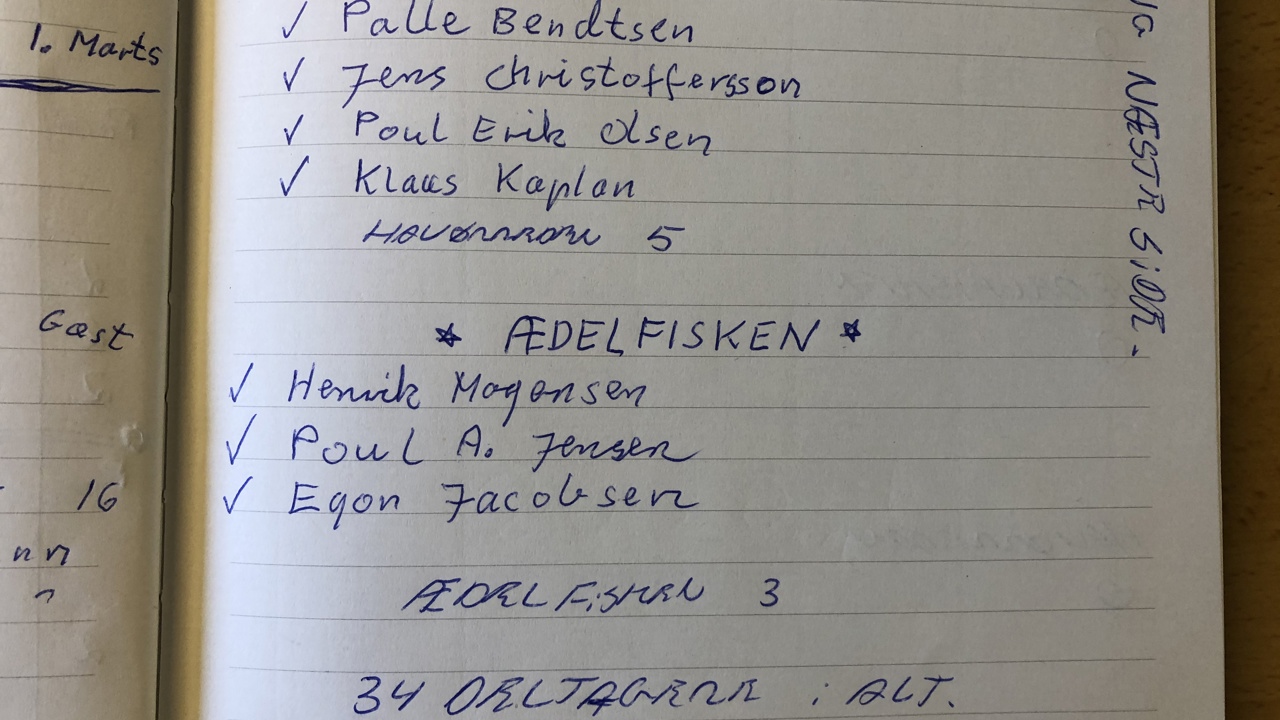 1. Marts
Gæst
16
✓ Palle Bendtsen
✓ Jens Christoffersson
✓ Poul Erik Olsen
✓ Klaus Kaplan
5
* ÆDELFISKEN *
✓ Henrik Mogensen
✓ Poul A. Jensen
✓ Egon Jacobsen
ÆDELFISKEN 3
34 DELTAGERE i ALT.
NÆSTE SIDE.